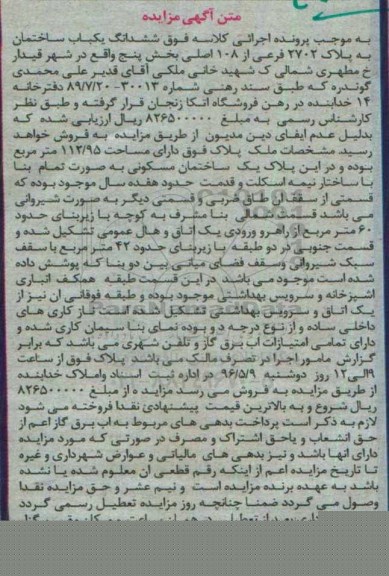 متن آگهی مزایده
به موجب پرونده اجرائی کلاسه فوق ششدانگ یکباب ساختمان
به پلاک ۲۷۰۲ فرعی از ۱۰۸ اصلی بخش پنج واقع در شهر قیدار
خ مطهری شمالی ک شهید خانی ملکی آقای قدیر علی محمدی
گوندره که طبق سند رهنی شماره ۳۰۰۱۳-۸۹/۷/۲۰ دفترخانه
۱۴ خدابنده در رهن فروشگاه اتکا زنجان قرار گرفته و طبق نظر
کارشناس رسمی به مبلغ ۸۲۶۵۰۰۰۰۰ ریال ارزیابی شده که
بدلیل عدم ایفای دین مدیون از طریق مزایده به فروش خواهد
رسید مشخصات ملک پلاک فوق دارای مساحت ۱۱۲/۹۵ متر مربع
بوده و در این پلاک یک ساختمان مسکونی به صورت تمام بنا
با ساختار نیمه اسکلت و قدمت حدود هفده سال موجود بوده که
قسمتی از سقف ان طاق ضربی و قسمتی دیگر به صورت شیروانی
می باشد قسمت شمالی بنا مشرف به کوچه با زیربنای حدود
۶۰ متر مربع از راهرو ورودی یک اتاق و هال عمومی تشکیل شده و
قسمت جنوبی در دو طبقه با زیربنای حدود ۴۲ متر مربع با سقف
سبک شیروانی وسقف فضای میانی بین دو بنا که پوشش داده
شده است موجود می باشد در این قسمت طبقه همکف انباری
اشپزخانه و سرویس بهداشتی موجود بوده و طبقه فوقانی ان نیز از
یک اتاق و سرویس بهداشتی تشکیل شده است ناز کاری های
داخلی ساده و از نوع درجه دو بوده نمای بنا سیمان کاری شده و
دارای تمامی امتیازات اب برق گاز و تلفن شهری می باشد که برابر
گزارش مامور اجرا در تصرف مالک می باشد پلاک فوق از ساعت
۹الی۱۲ روز دوشنبه ۹۶/۵/۹ در اداره ثبت اسناد واملاک خدابنده
از طریق مزایده به فروش می رسد مزایده از مبلغ ۸۲۶۵۰۰۰۰۰
ریال شروع و به بالاترین قیمت پیشنهادی نقدا فروخته می شود
لازم به ذکر است پرداخت بدهی های مربوط به اب برق گاز اعم از
حق انشعاب و یاحق اشتراک و مصرف در صورتی که مورد مزایده
دارای انها باشد و نیز بدهی های مالیاتی و عوارض شهرداری و غیره
تا تاریخ مزایده اعم از اینکه رقم قطعی ان معلوم شده یا نشده
باشد به عهده برنده مزایده است و نیم عشر و حق مزایده نقدا
وصول می گردد ضمنا چنانچه روز مزایده تعطیل رسمی گردد